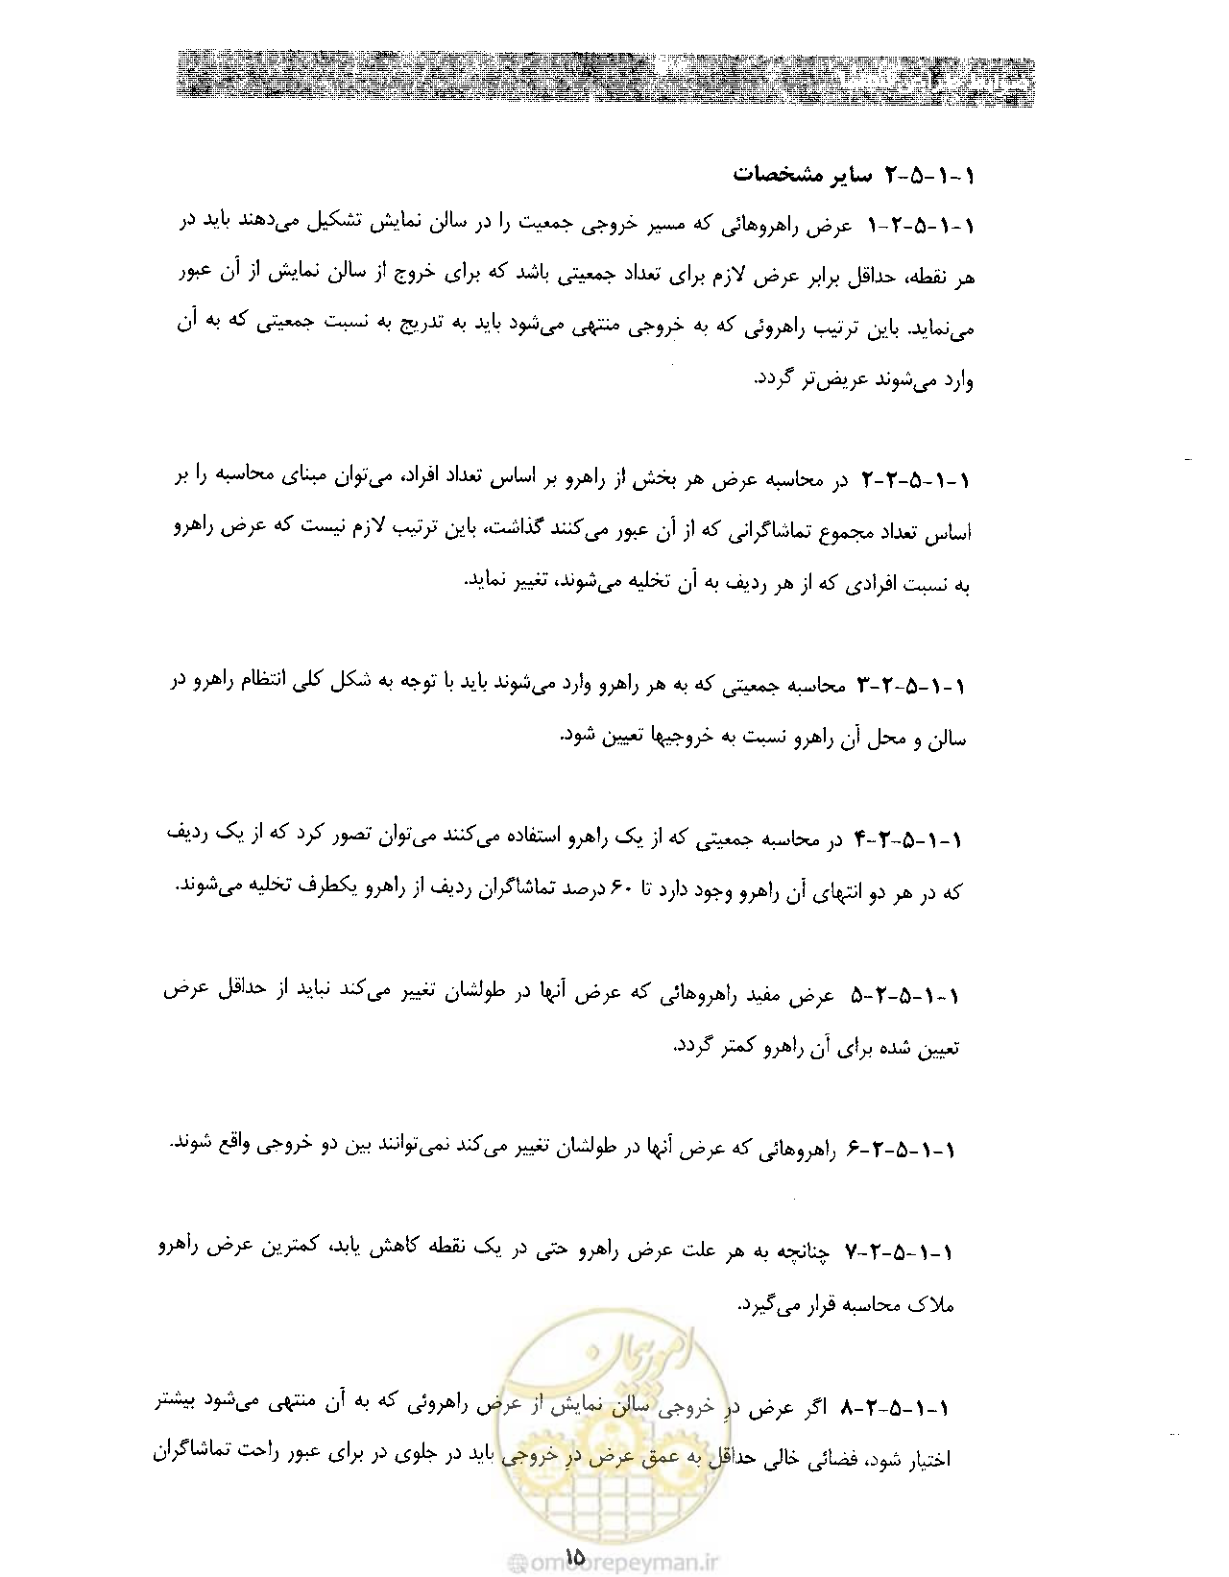 ۱-۱-۵-۲ سایر مشخصات
۱-۱-۵-۲-۱ عرض راهروهائی که مسیر خروجی جمعیت را در سالن نمایش تشکیل می‌دهند باید در
هر نقطه، حداقل برابر عرض لازم برای تعداد جمعیتی باشد که برای خروج از سالن نمایش از آن عبور
می‌نماید. باین ترتیب راهروئی که به خروجی منتهی می‌شود باید به تدریج به نسبت جمعیتی که به آن
وارد می‌شوند عریض‌تر گردد.
۱-۱-۵-۲-۲ در محاسبه عرض هر بخش از راهرو بر اساس تعداد افراد، می‌توان مبنای محاسبه را بر
اساس تعداد مجموع تماشاگرانی که از آن عبور می‌کنند گذاشت، باین ترتیب لازم نیست که عرض راهرو
به نسبت افرادی که از هر ردیف به آن تخلیه می‌شوند، تغییر نماید.
۱-۱-۵-۲-۳ محاسبه جمعیتی که به هر راهرو وارد می‌شوند باید با توجه به شکل کلی انتظام راهرو در
سالن و محل آن راهرو نسبت به خروجیها تعیین شود.
۱-۱-۵-۲-۴ در محاسبه جمعیتی که از یک راهرو استفاده می‌کنند می‌توان تصور کرد که از یک ردیف
که در هر دو انتهای آن راهرو وجود دارد تا ۶۰ درصد تماشاگران ردیف از راهرو یکطرف تخلیه می‌شوند.
۱-۱-۵-۲-۵ عرض مفید راهروهائی که عرض آنها در طولشان تغییر می‌کند نباید از حداقل عرض
تعیین شده برای آن راهرو کمتر گردد.
۱-۱-۵-۲-۶ راهروهائی که عرض آنها در طولشان تغییر می‌کند نمی‌توانند بین دو خروجی واقع شوند.
۱-۱-۵-۲-۷ چنانچه به هر علت عرض راهرو حتی در یک نقطه کاهش یابد، کمترین عرض راهرو
ملاک محاسبه قرار می‌گیرد.
۱-۱-۵-۲-۸ اگر عرض درِ خروجی سالن نمایش از عرض راهروئی که به آن منتهی می‌شود بیشتر
اختیار شود، فضائی خالی حداقل به عمق عرض درِ خروجی باید در جلوی در برای عبور راحت تماشاگران
امور پیمان
۱۵
@omoorepeyman.ir